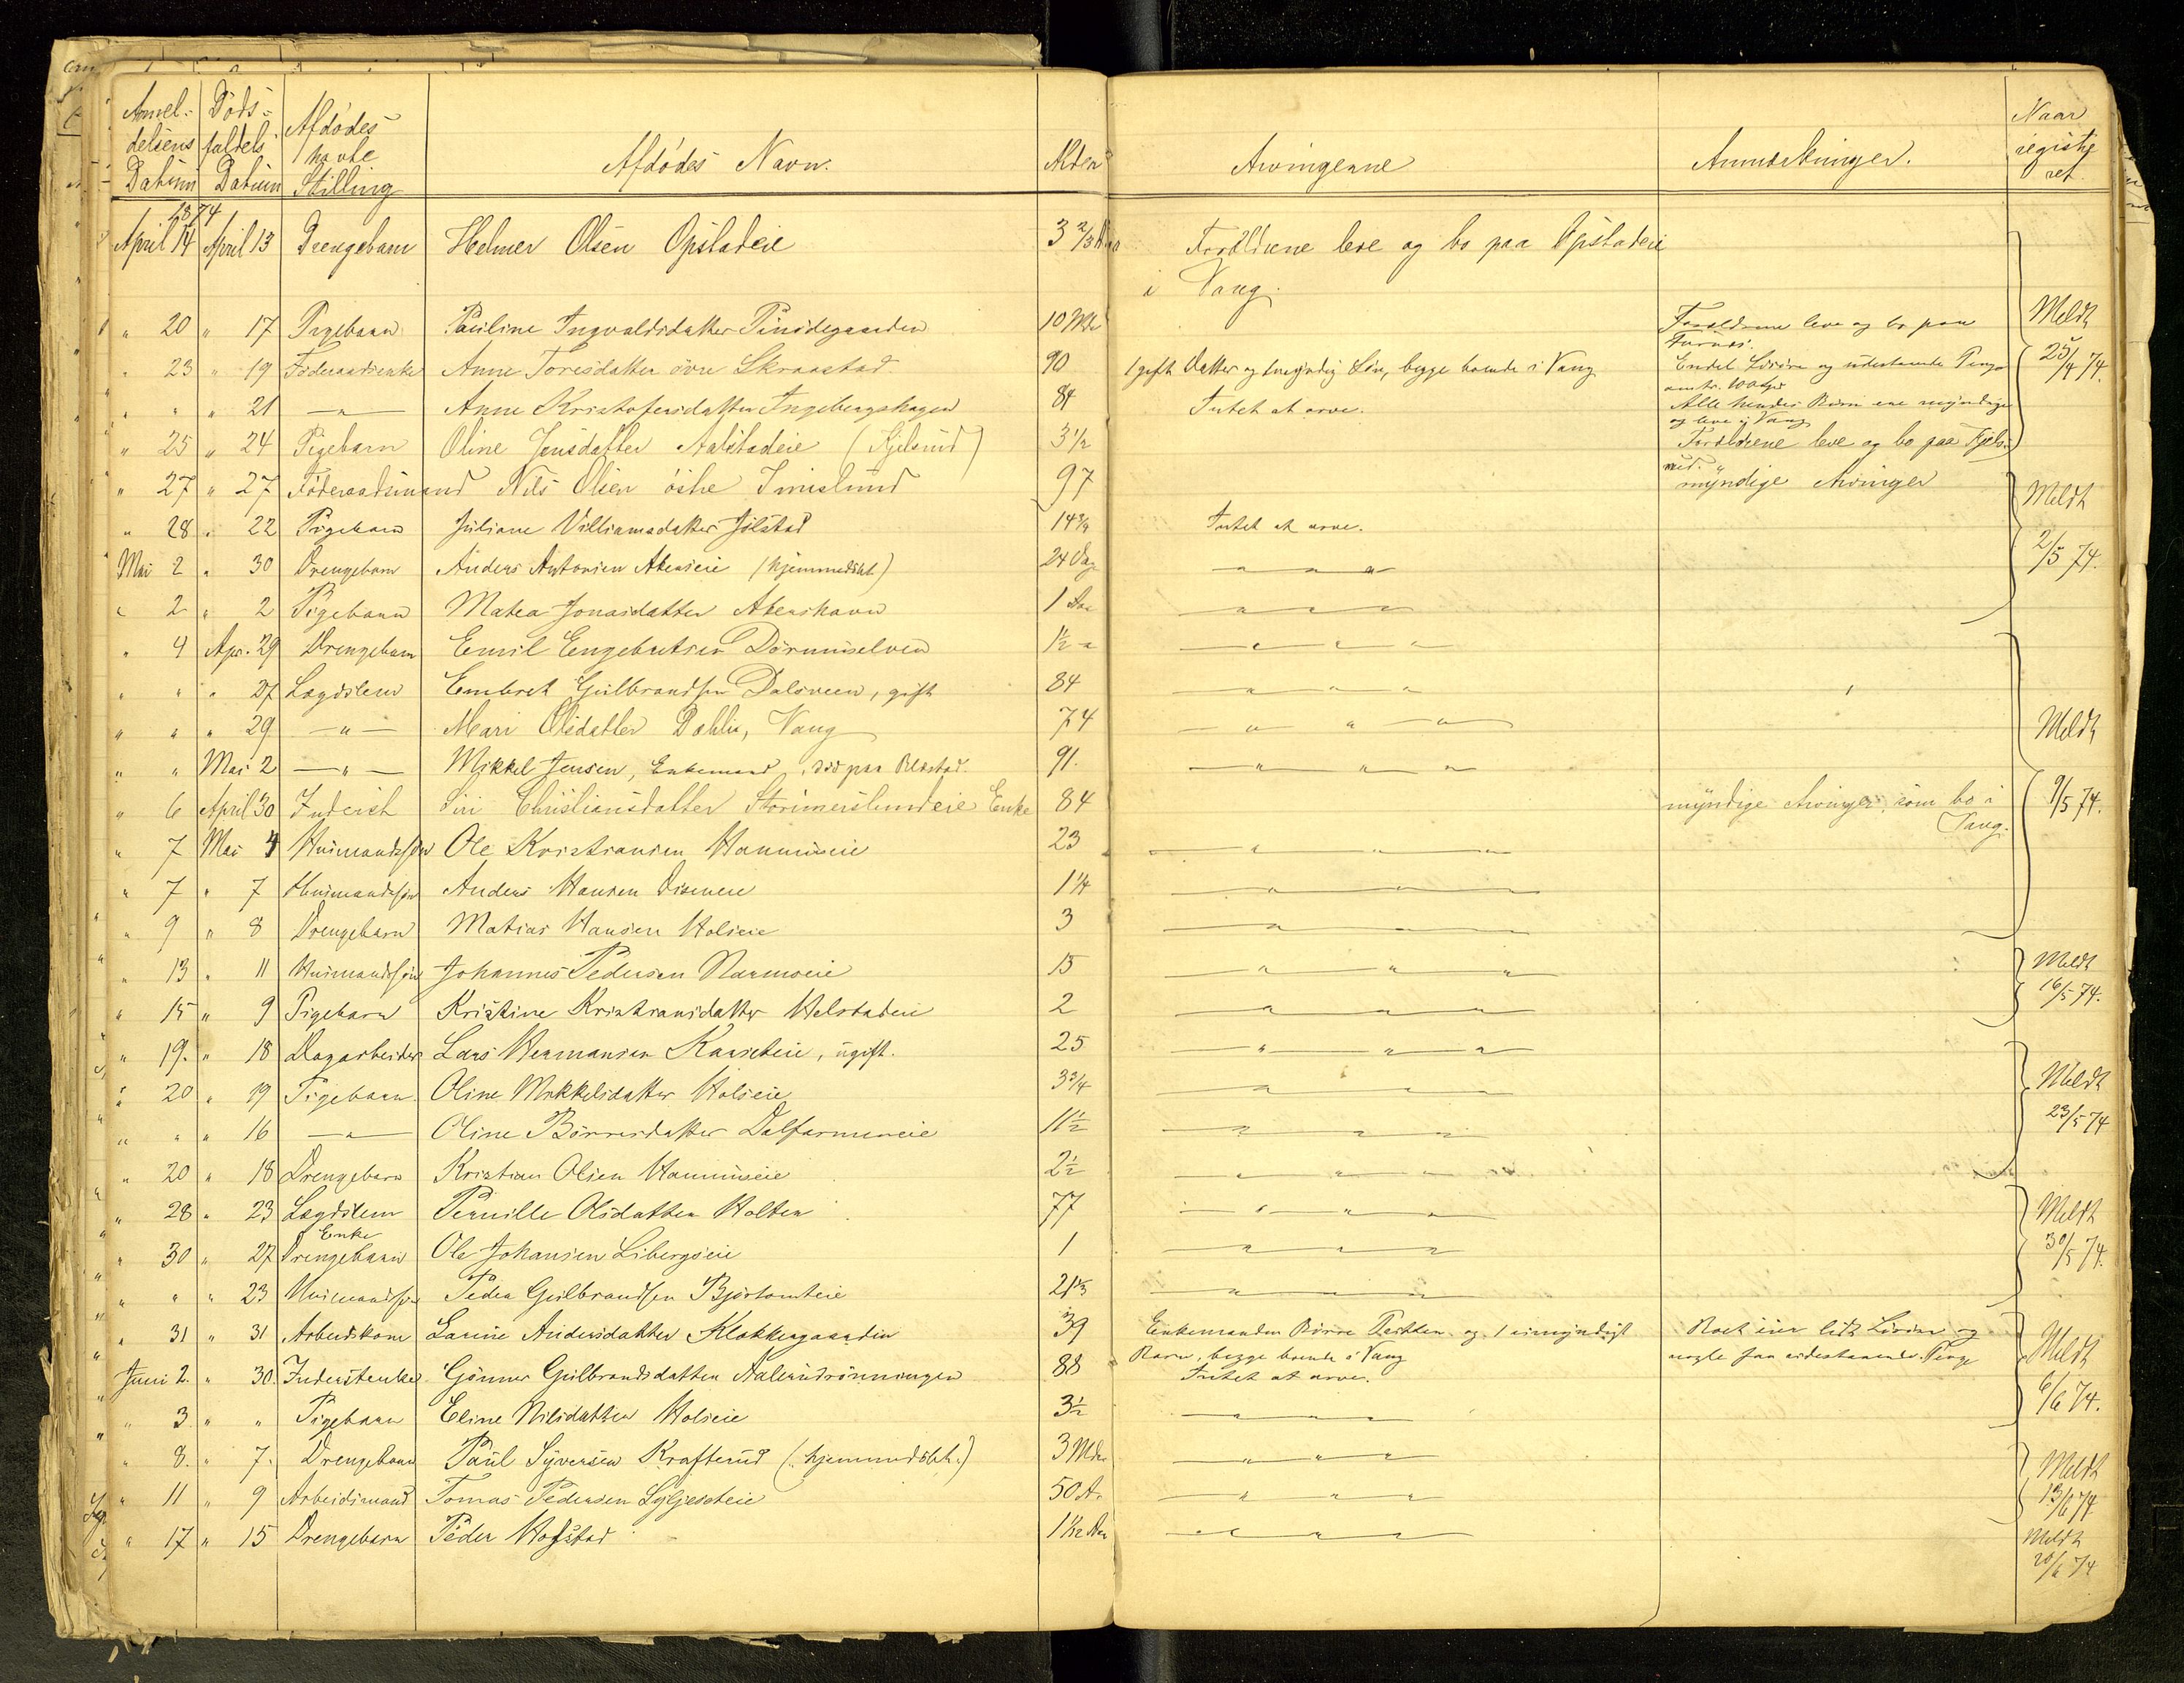 Anmel- Døds- Afdødes Afdødes Navn. Alder Arvingerne Anmærkninger. Naar
delsens faldets havte registr
Datum Datum Stilling ret
1874
April 14 April 13 Drengebarn Helmer Olsen Opstadeie 3 2/3 Forældrene leve og bo paa Opstadeie
i Vang.
" 20 " 17 Pigebarn Pauline Ingvaldsdatter 10 Mdr Forældrene leve og bo paa Meldt
Furnæs.
" 23 " 19 Føderaadsenke Anne Toresdatter øvre Skraastad 90 1 gift Datter og 1 myndig Søn, begge boende i Vang Endel Løsøre og udestaaende Penge 25/4 74.
" " " 21 —"— Anne Kristofersdatter Ingebergshagen 84 Intet at arve. Alle hendes Børn ere myndige
og leve i Vang
" 25 " 24 Pigebarn Oline Jensdatter Aalstadeie (Kjelsrud) 3 1/2 Forældrene leve og bo paa Kjels-
rud.
" 27 " 27 Føderaadsmand Nils Olsen østre Imislund 97 myndige Arvinger Meldt
" 28 " 22 Pigebarn Juliane Villiamsdatter Jølstad 14 3/4 Intet at arve.
Mai 2 " 30 Drengebarn Anders Antonsen Akerseie (hjemmedøbt) 24 Dag — " — " — 2/5 74.
" 2 " 2 Pigebarn Matea Jonasdatter Akershavn 1 — " — " — " —
" 4 Apr. 29 Drengebarn Emil Engebretsen 1 1/2 " — " — " — " —
" " " 27 Lægdslem Embret Gulbrandsen Dalsveen, gift 84 — " — " — " —
" " " 29 —"— Mari Olsdatter Dahlie, Vang 74 — " — " — " — Meldt
" " Mai 2 —"— Mikkel Jensen, Enkemand, død paa 91. — " — " — " —
" 6 April 30 Inderst Siri Christiansdatter Storimerslundeie Enke 84 myndige Arvinger, som bo i 9/5 74.
Vang.
" 7 Mai 4 Husmandssøn Ole Kristiansen Hommiseie 23 — " — " — " —
" 7 " 7 Husmandssøn Anders Hansen Diseneie 1 1/4 — " — " — " —
" 9 " 8 Drengebarn Matias Hansen Holseie 3 — " — " — " —
" 13 " 11 Husmandssøn Johannes Pedersen 15 — " — " — " — Meldt
16/5 74.
" 15 " 9 Pigebarn Kristine Kristiansdatter Helstadeie 2 — " — " — " —
" 19. " 18 Dagarbeider Lars Hermansen Karseteie, ugift. 25 — " — " — " —
" 20 " 19 Pigebarn Oline Mikkelsdatter Holseie 3 3/4 — " — " — " — Meldt
" " " 16 —"— Oline Børresdatter Dalfarmeneie 11 1/2 — " — " — " — 23/5 74
" 20 " 18 Drengebarn Kristian Olsen Hommiseie 2 1/2 — " — " — " —
" 28 " 23 Lægdslem Pernille Olsdatter Holten 77 — " — " — " — Meldt
Enke
" 30 " 27 Drengebarn Ole Johansen Libergseie 1 — " — " — " — 30/5 74.
" " " 23 Husmandssøn Peder Gulbrandsen Bjørtomteie 21 — " — " — " —
" 31 " 31 Arbeidskone Larine Andersdatter Klokkergaarden 39 Enkemanden Børre og 1 umyndigt Boet eier lidt Løsøre og Meldt
Barn, begge boende i Vang nogle faa udestaaende Penge
Juni 2. " 30. Inderstenke Gønner Gulbrandsdatter 88 Intet at arve.
" 3 " " Pigebarn Eline Nilsdatter Holseie 3 1/2 — " — " — " — 6/6 74.
" 8. " 7. Drengebarn Paul Syversen Krafterud (hjemmedøbt.) 3 Mdr — " — " — " — Meldt
" 11 " 9 Arbeidsmand Tomas Pedersen 50 A. — " — " — " — 13/6 74
" 17 " 15 Drengebarn Peder Hofstad 1 1/12 — " — " — " — Meldt
20/6 74